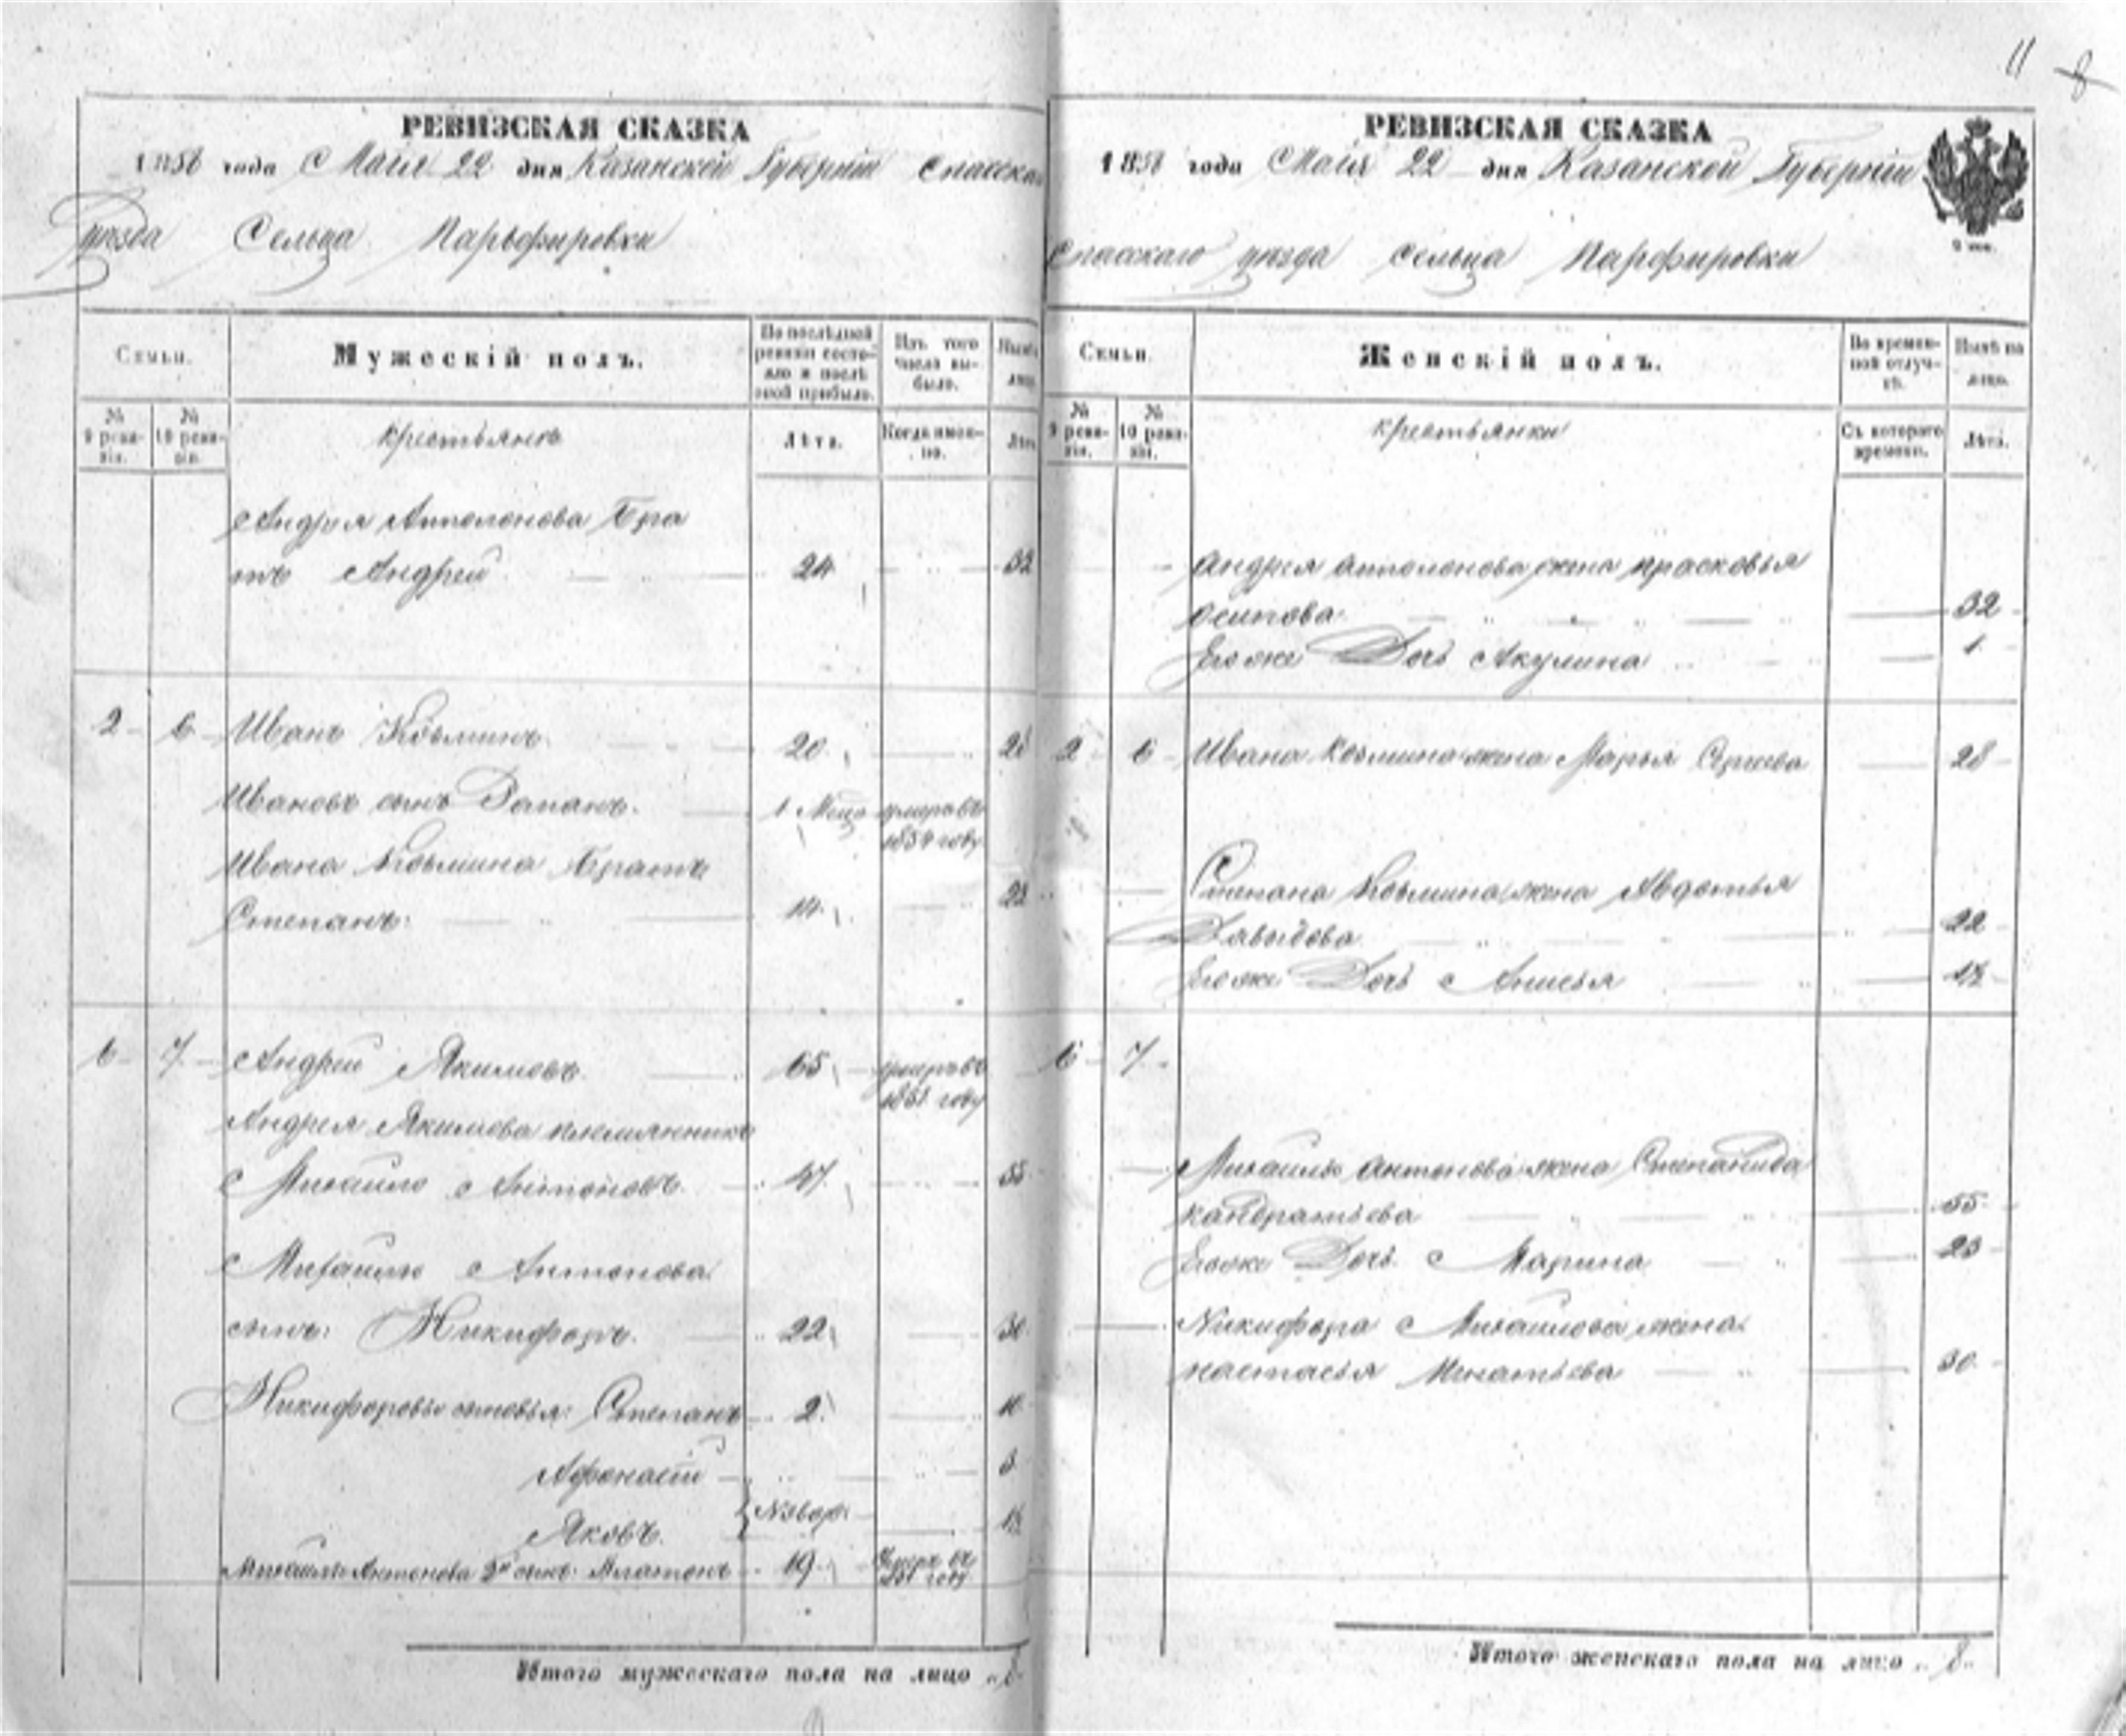 11 8
РЕВИЗСКАЯ СКАЗКА
1858 года Маія 22 дня Казанской Губерніи Спасска
уезда Сельца Парьфировки
Семьи.
Мужескій полъ.
По послѣдней ревизіи состояло и послѣ оной прибыло.
Изъ того числа выбыло.
№ 9 ревизіи.
№ 10 ревизіи.
крестьянъ
Лѣта.
Когда именно.
Андрея Антонова Бра
тъ Андрей 24 32
2 6 Иванъ Козьминъ 20 28
Ивановъ сынъ 1 умеръ въ
1854 году
Ивана Козьмина Братъ
Степанъ 14 22
6 7 Андрей Якимовъ 65 умеръ въ
1851 году
Андрея Якимова племянникъ
Михайло Антоновъ 47 55
Михайлы Антонова
сынъ: Никифоръ 22 30
Никифоровы сыновья: Степанъ 2 10
Афонасій 3
Яковъ
Михайлы Антонова 2й сынъ Платонъ 19 Умеръ въ
году
Итого мужескаго пола на лицо
РЕВИЗСКАЯ СКАЗКА
1858 года Маія 22 дня Казанской Губерніи
Спасскаго уезда сельца Парфировки
Семьи.
Женскій полъ.
Во временной отлучкѣ.
Нынѣ на лицо.
№ 9 ревизіи.
№ 10 ревизіи.
крестьянки
Съ котораго времени.
Лѣта.
Андрея жена прасковья
осипова 32
Его же Дочь Акулина 1
2 6 Ивана Козьмина жена Марья Сергеева 28
Степана Козьмина жена Авдотья
Давыдова 22
Его же Дочь Анисья
6 7
Михайлы Антонова жена Степанида
кандратьева 55
Его же Дочь Марина 23
Никифора Михайлова жена
настасья Игнатьева 30
Итого женскаго пола на лицо 8